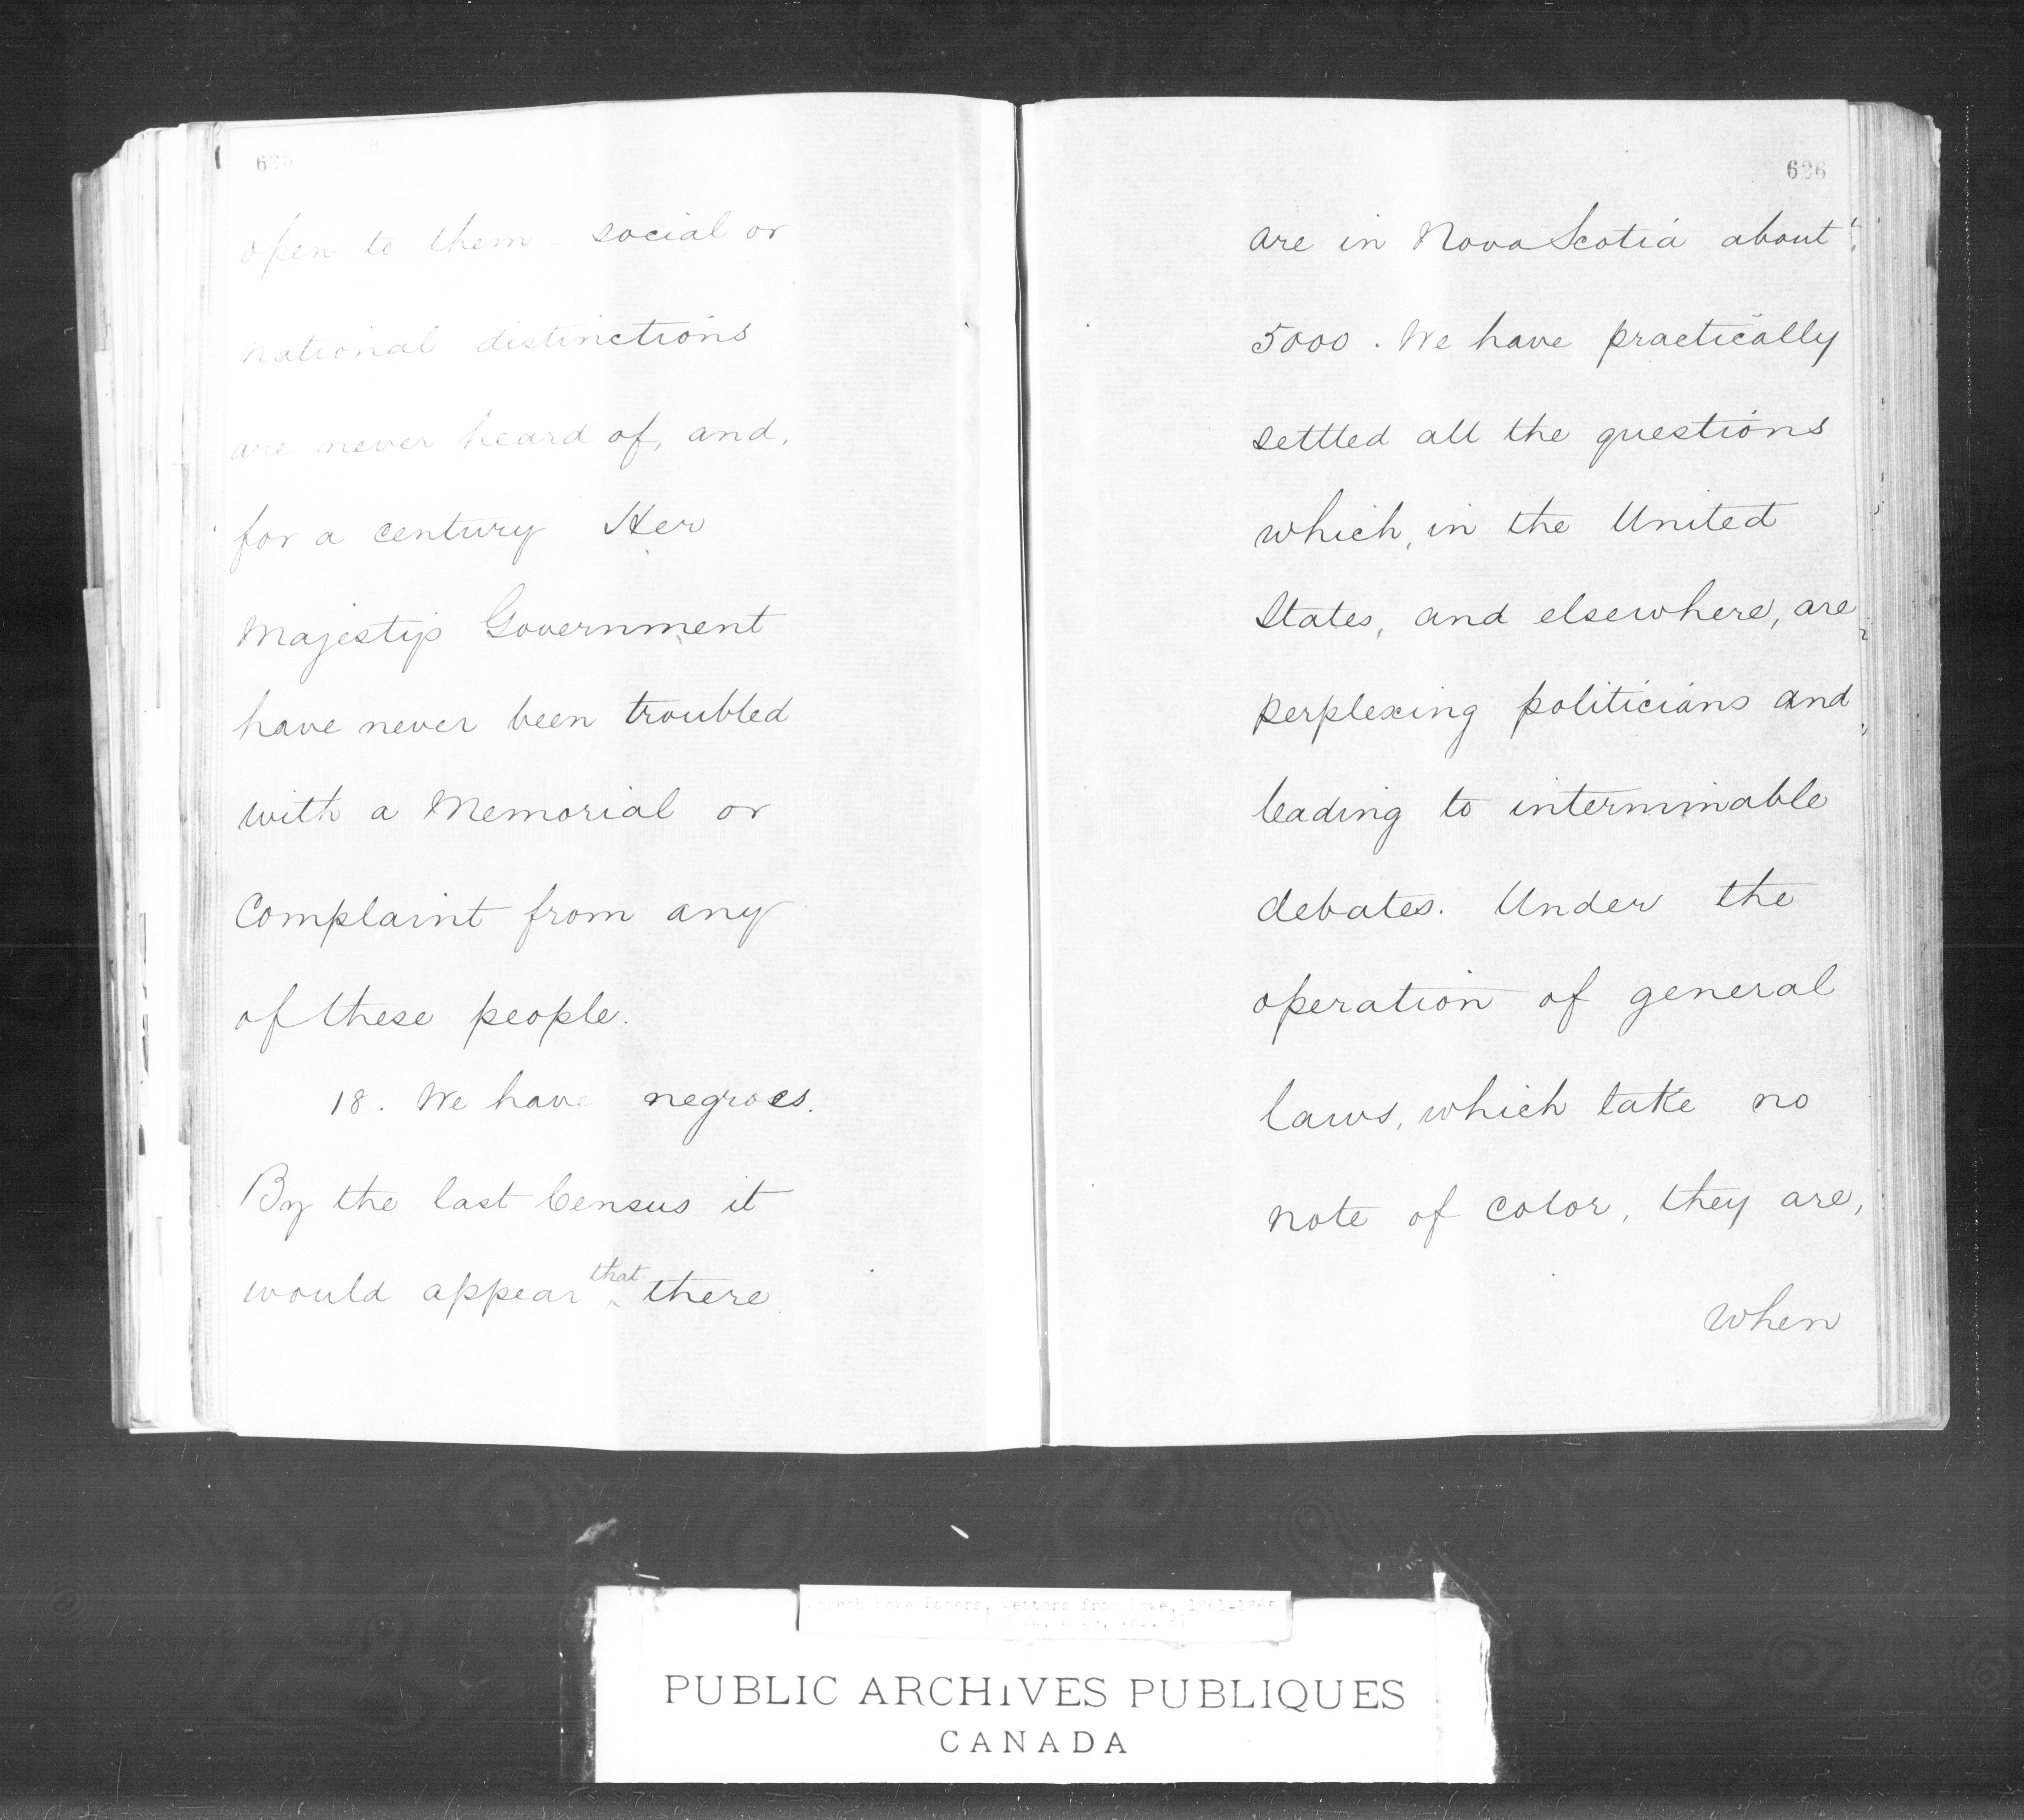 625
open to them - social or
national distinctions
are never heard of, and,
for a century Her
Majesty's Government
have never been troubled
with a Memorial or
Complaint from any
of these people.
18. We have negroes.
By the last Census it
would appear that there
626
are in Nova Scotia about
5000. We have practically
settled all the questions
which, in the United
States, and elsewhere, are
perplexing politicians and
leading to interminable
debates. Under the
operation of general
laws, which take no
note of color, they are,
when
Joseph Howe Papers, Letters from Howe, 1861-186
PUBLIC ARCHIVES PUBLIQUES
CANADA